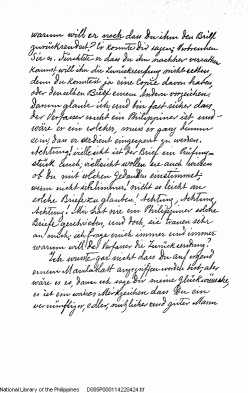 warum will er noch dass Du ihm den Brief
zurücksendest? Er konnte dir sagen; Verbrennen
Sie es. Fürchtete er dass du ihn nachher verrathen
kannst, will ihn die Zurücksendung nicht retten
denn du konntest ja eine Copie davon haben
oder denselben Brief einem Andern vorzeichen
darum glaube ich, und bin fast sicher dass
der Verfasser nicht ein Philippiner ist, und
wäre er ein solcher, muss er ganz dumm
sein, dass er verdient eingesperrt zu werden.
Achtung! vielleicht ist der Brief ein Prüfung-
stück Euch; vielleicht wollen sie auch wissen
ob du mit solchen Gedanken einstimmest,
wenn nicht schlimmer! nicht so leicht an
solche Briefe zu glauben! Achtung, Achtung,
Achtung! Mir hat nie ein Philippiner solche
Briefe geschrieben, und doch, sie trauen sehr
an mich; ich frage mich immer und immer
warum will der Verfasser die Zurücksendung?
Ich wusste gar nicht dass Du auf irgend
einem Manilablatt angegriffen worden bist; aber
wäre es so, dann ich sage dir meine Glückwünsche,
es ist ein wahres Merkzeichen dass Du ein
vernünftiger, edler, nützlicher und guter Mann
National Library of the Philippines D085P000114220424.tif